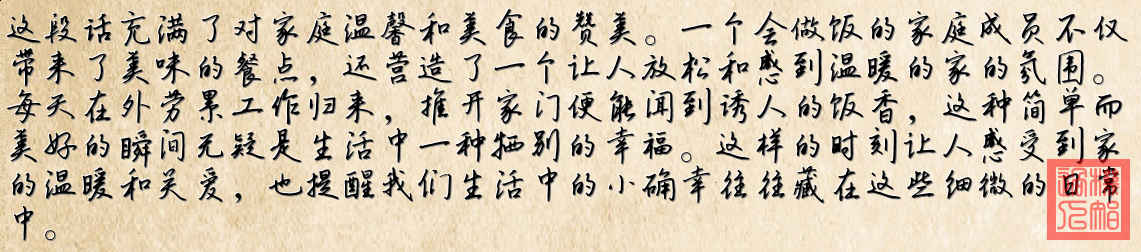 这段话充满了对家庭温馨和美食的赞美。一个会做饭的家庭成员不仅
带来了美味的餐点，还营造了一个让人放松和感到温暖的家的氛围。
每天在外劳累工作归来，推开家门便能闻到诱人的饭香，这种简单而
美好的瞬间无疑是生活中一种牺别的幸福。这样的时刻让人感受到家
的温暖和关爱，也提醒我们生活中的小确幸往往藏在这些细微的日常
中。